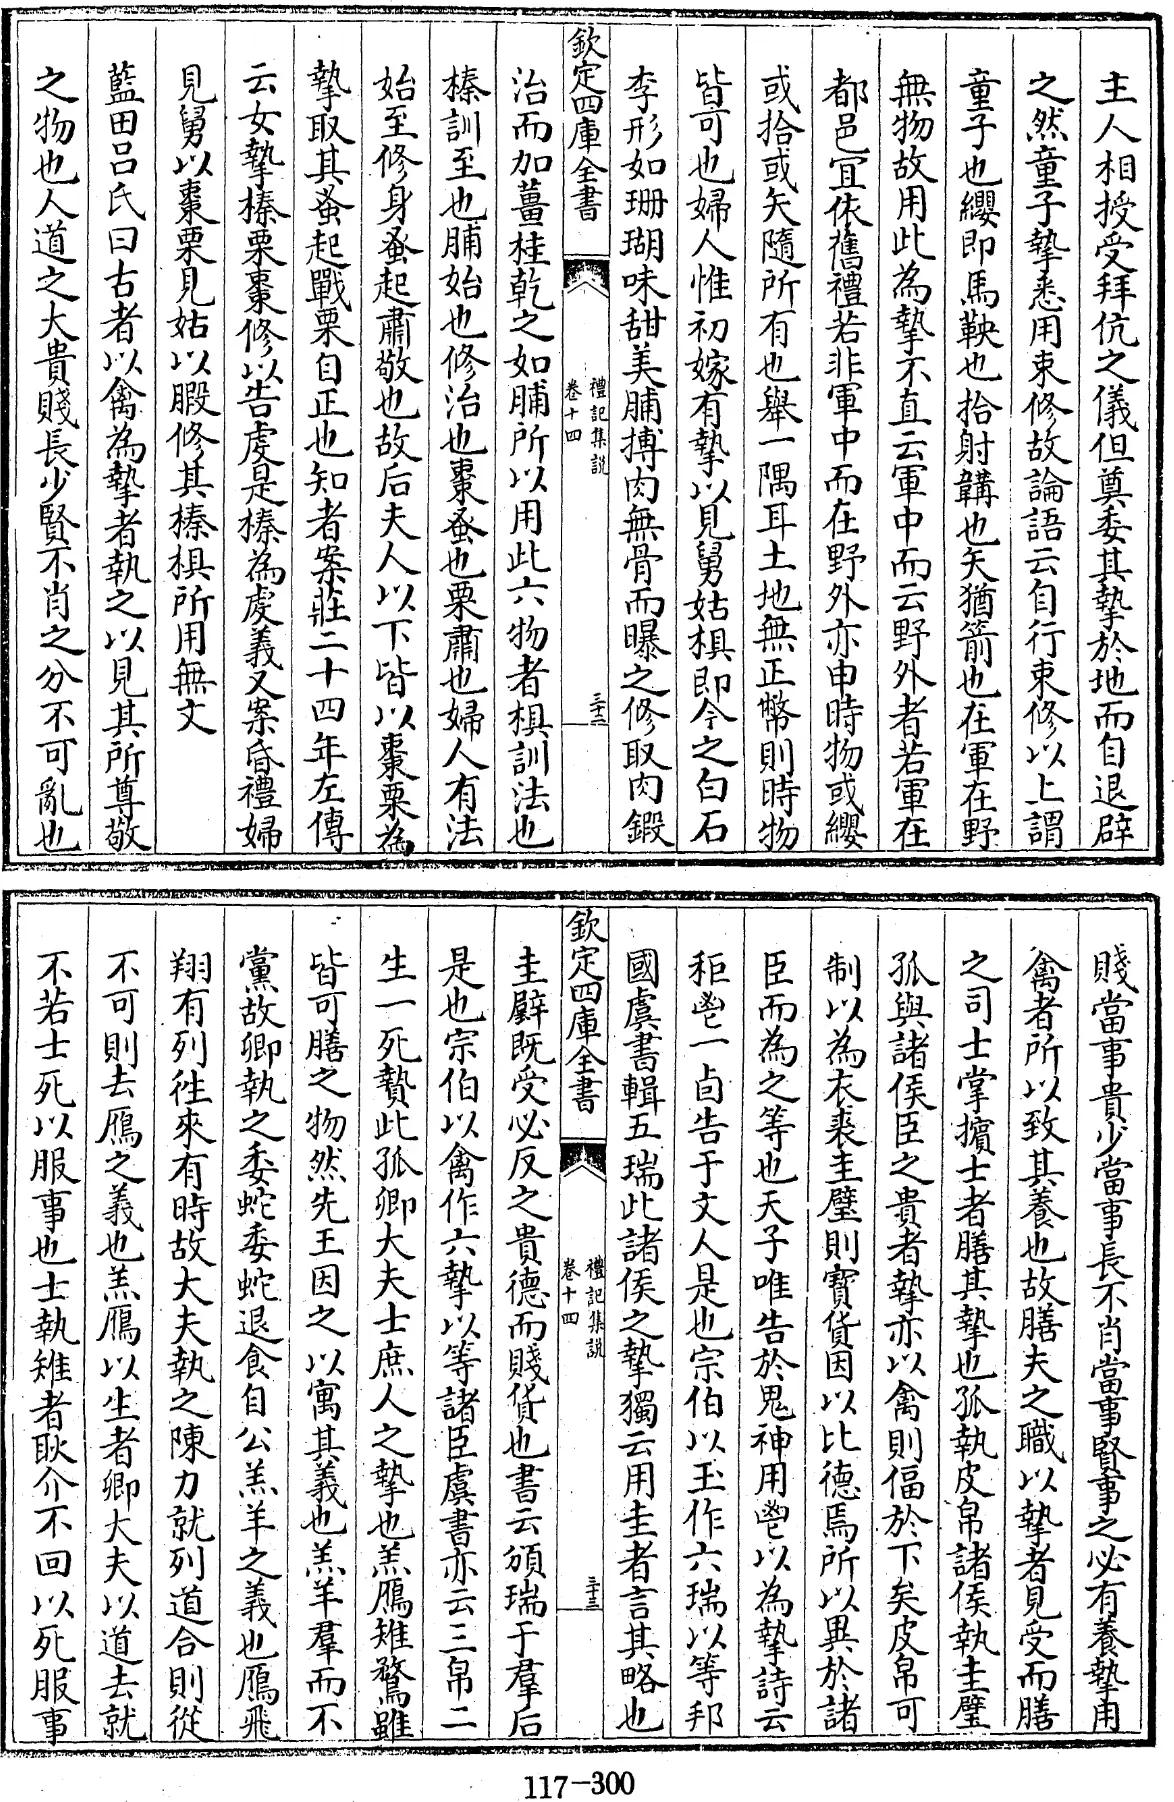 主人相授受拜伉之儀但奠委其摯於地而自退辟
之然童子摯悉用束修故論語云自行束修以上謂
童子也纓即馬鞅也拾射韝也矢猶箭也在軍在野
無物故用此為摯不直云軍中而云野外者若軍在
都邑宜依舊禮若非軍中而在野外亦申時物或纓
或拾或矢隨所有也舉一隅耳土地無正幣則時物
皆可也婦人惟初嫁有摯以見舅姑椇即今之白石
李形如珊瑚味甜美脯搏肉無骨而曝之修取肉鍛
欽定四庫全書
禮記集說
卷十四
三十二
治而加薑桂乾之如脯所以用此六物者椇訓法也
榛訓至也脯始也修治也棗蚤也栗肅也婦人有法
始至修身蚤起肅敬也故后夫人以下皆以棗栗為
摯取其蚤起戰栗自正也知者案莊二十四年左傳
云女摯榛栗棗修以告虔是榛為虔義又案昏禮婦
見舅以棗栗見姑以腶修其榛椇所用無文
藍田呂氏曰古者以禽為摯者執之以見其所尊敬
之物也人道之大貴賤長少賢不肖之分不可亂也
賤當事貴少當事長不肖當事賢事之必有養摯用
禽者所以致其養也故膳夫之職以摯者見受而膳
之司士掌擯士者膳其摯也孤執皮帛諸侯執圭璧
孤與諸侯臣之貴者摯亦以禽則偪於下矣皮帛可
制以為衣裘圭璧則寶貨因以比德焉所以異於諸
臣而為之等也天子唯告於鬼神用鬯以為摯詩云
秬鬯一卣告于文人是也宗伯以玉作六瑞以等邦
國虞書輯五瑞此諸侯之摯獨云用圭者言其略也
欽定四庫全書
禮記集說
卷十四
三十三
圭璧既受必反之貴德而賤貨也書云頒瑞于羣后
是也宗伯以禽作六摯以等諸臣虞書亦云三帛二
生一死贄此孤卿大夫士庶人之摯也羔鴈雉鶩雖
皆可膳之物然先王因之以寓其義也羔羊羣而不
黨故卿執之委蛇委蛇退食自公羔羊之義也鴈飛
翔有列徃來有時故大夫執之陳力就列道合則從
不可則去鴈之義也羔鴈以生者卿大夫以道去就
不若士死以服事也士執雉者耿介不回以死服事
117-300